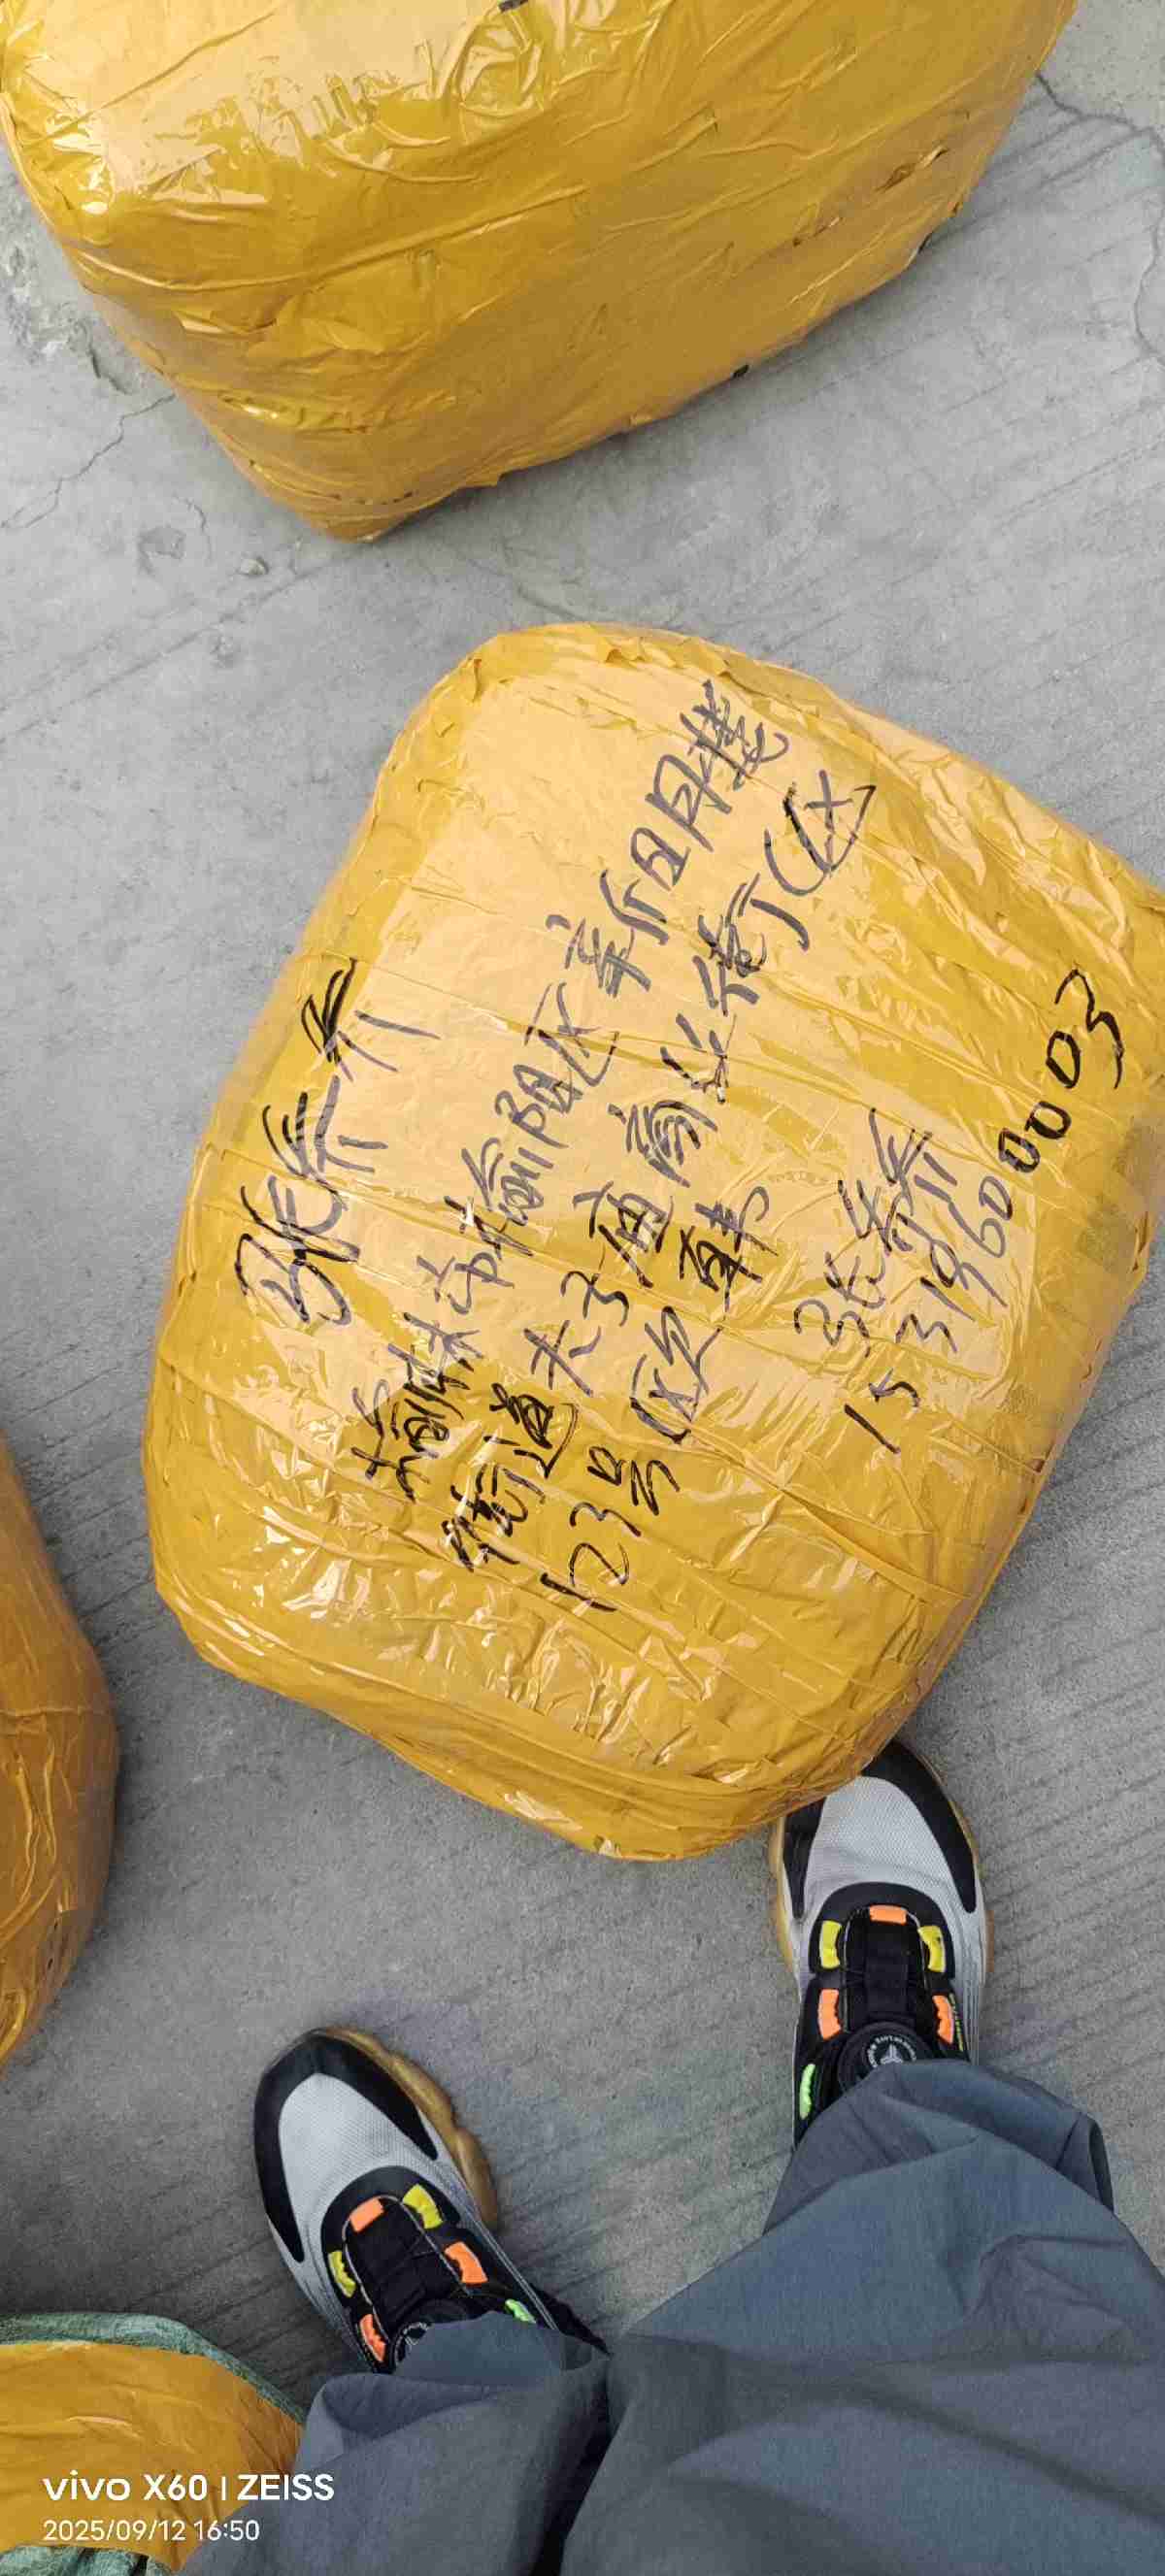 张乔乔
榆林市榆阳区新明楼
街道夫子庙商业街丁区
123号
张乔
15319600003
vivo X60 | ZEISS
2025/09/12 16:50